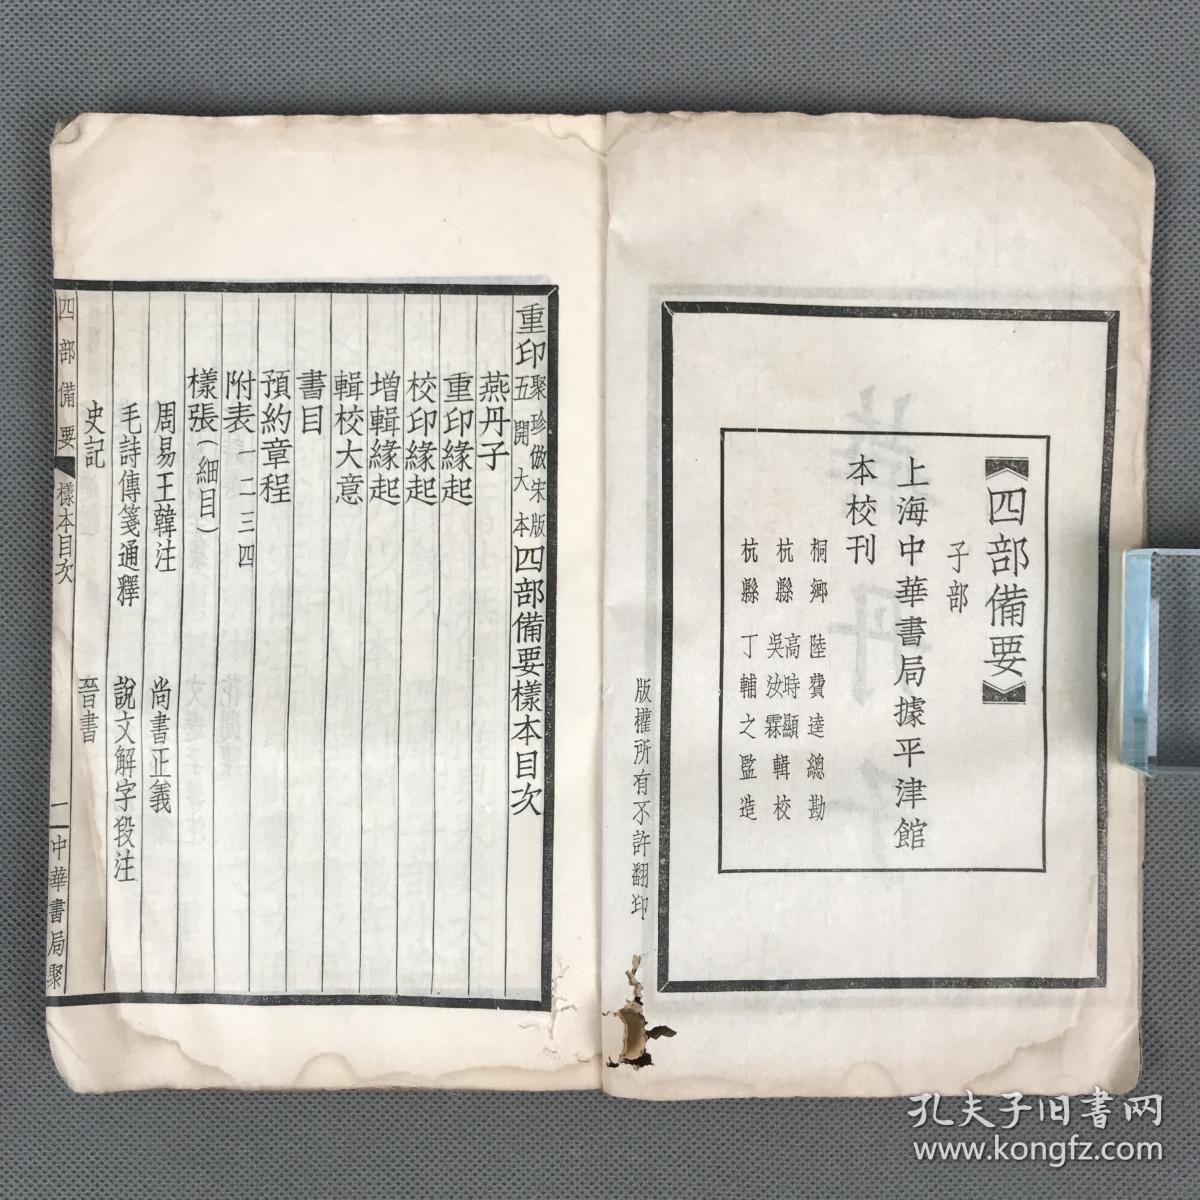 【四部備要】
子部
上海中華書局據平津館
本校刊
桐鄉 陸費逵總勘
杭縣 高時顯 吳汝霖 輯校
杭縣 丁輔之監造
版權所有不許翻印
重印聚珍倣宋版五開大本四部備要樣本目次
燕丹子
重印緣起
校印緣起
增輯緣起
輯校大意
書目
預約章程
附表一二三四
樣張(細目)
周易王韓注 尚書正義
毛詩傳箋通釋 說文解字段注
史記 晉書
四部備要 樣本目次 一 中華書局聚
孔夫子旧书网
www.kongfz.com